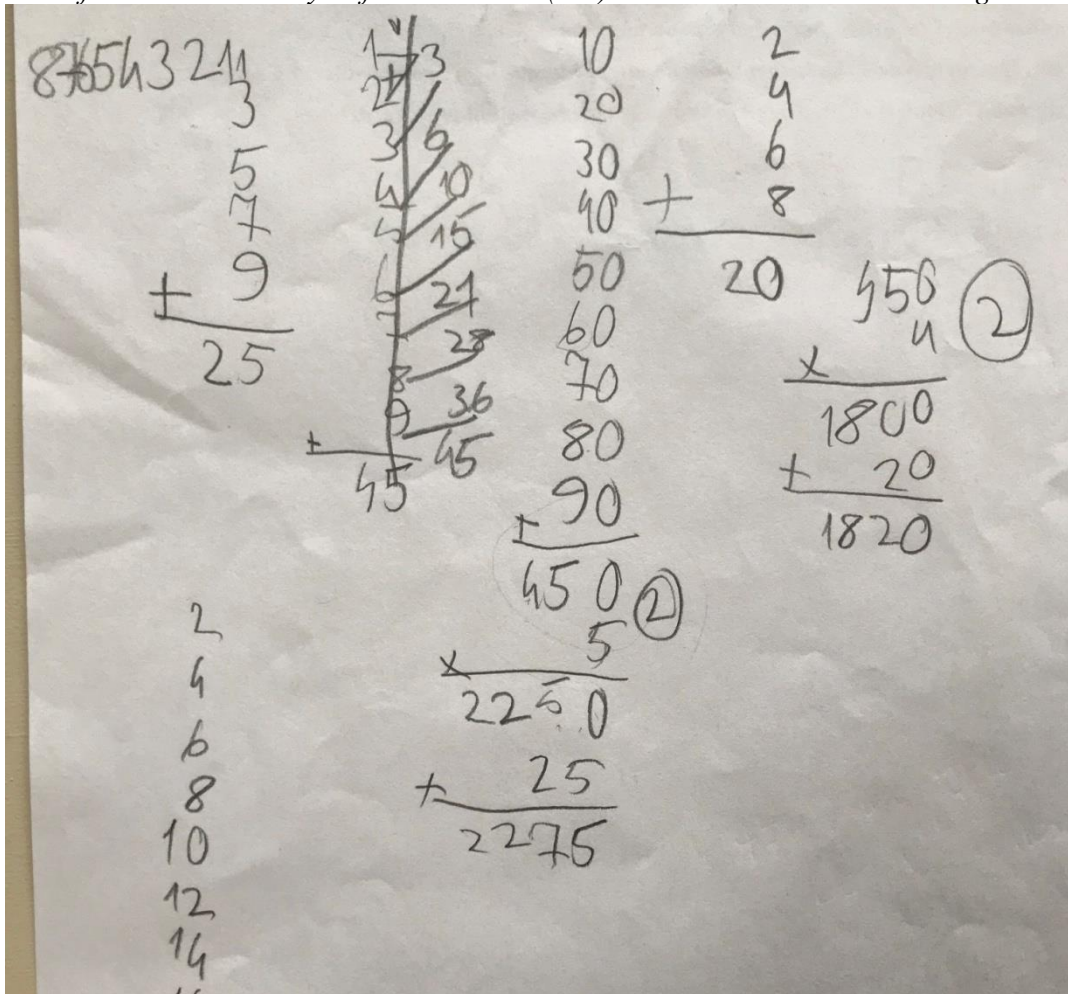 87654321
1
3
5
7
+ 9
25
1
2
3
4
5
6
7
8
9
+
45
3
6
10
15
21
28
36
45
10
20
30
40
50
60
70
80
+ 90
450 ②
x 5
2250
+ 25
2275
2
4
6
+ 8
20
450 ②
x 4
1800
+ 20
1820
2
4
6
8
10
12
14